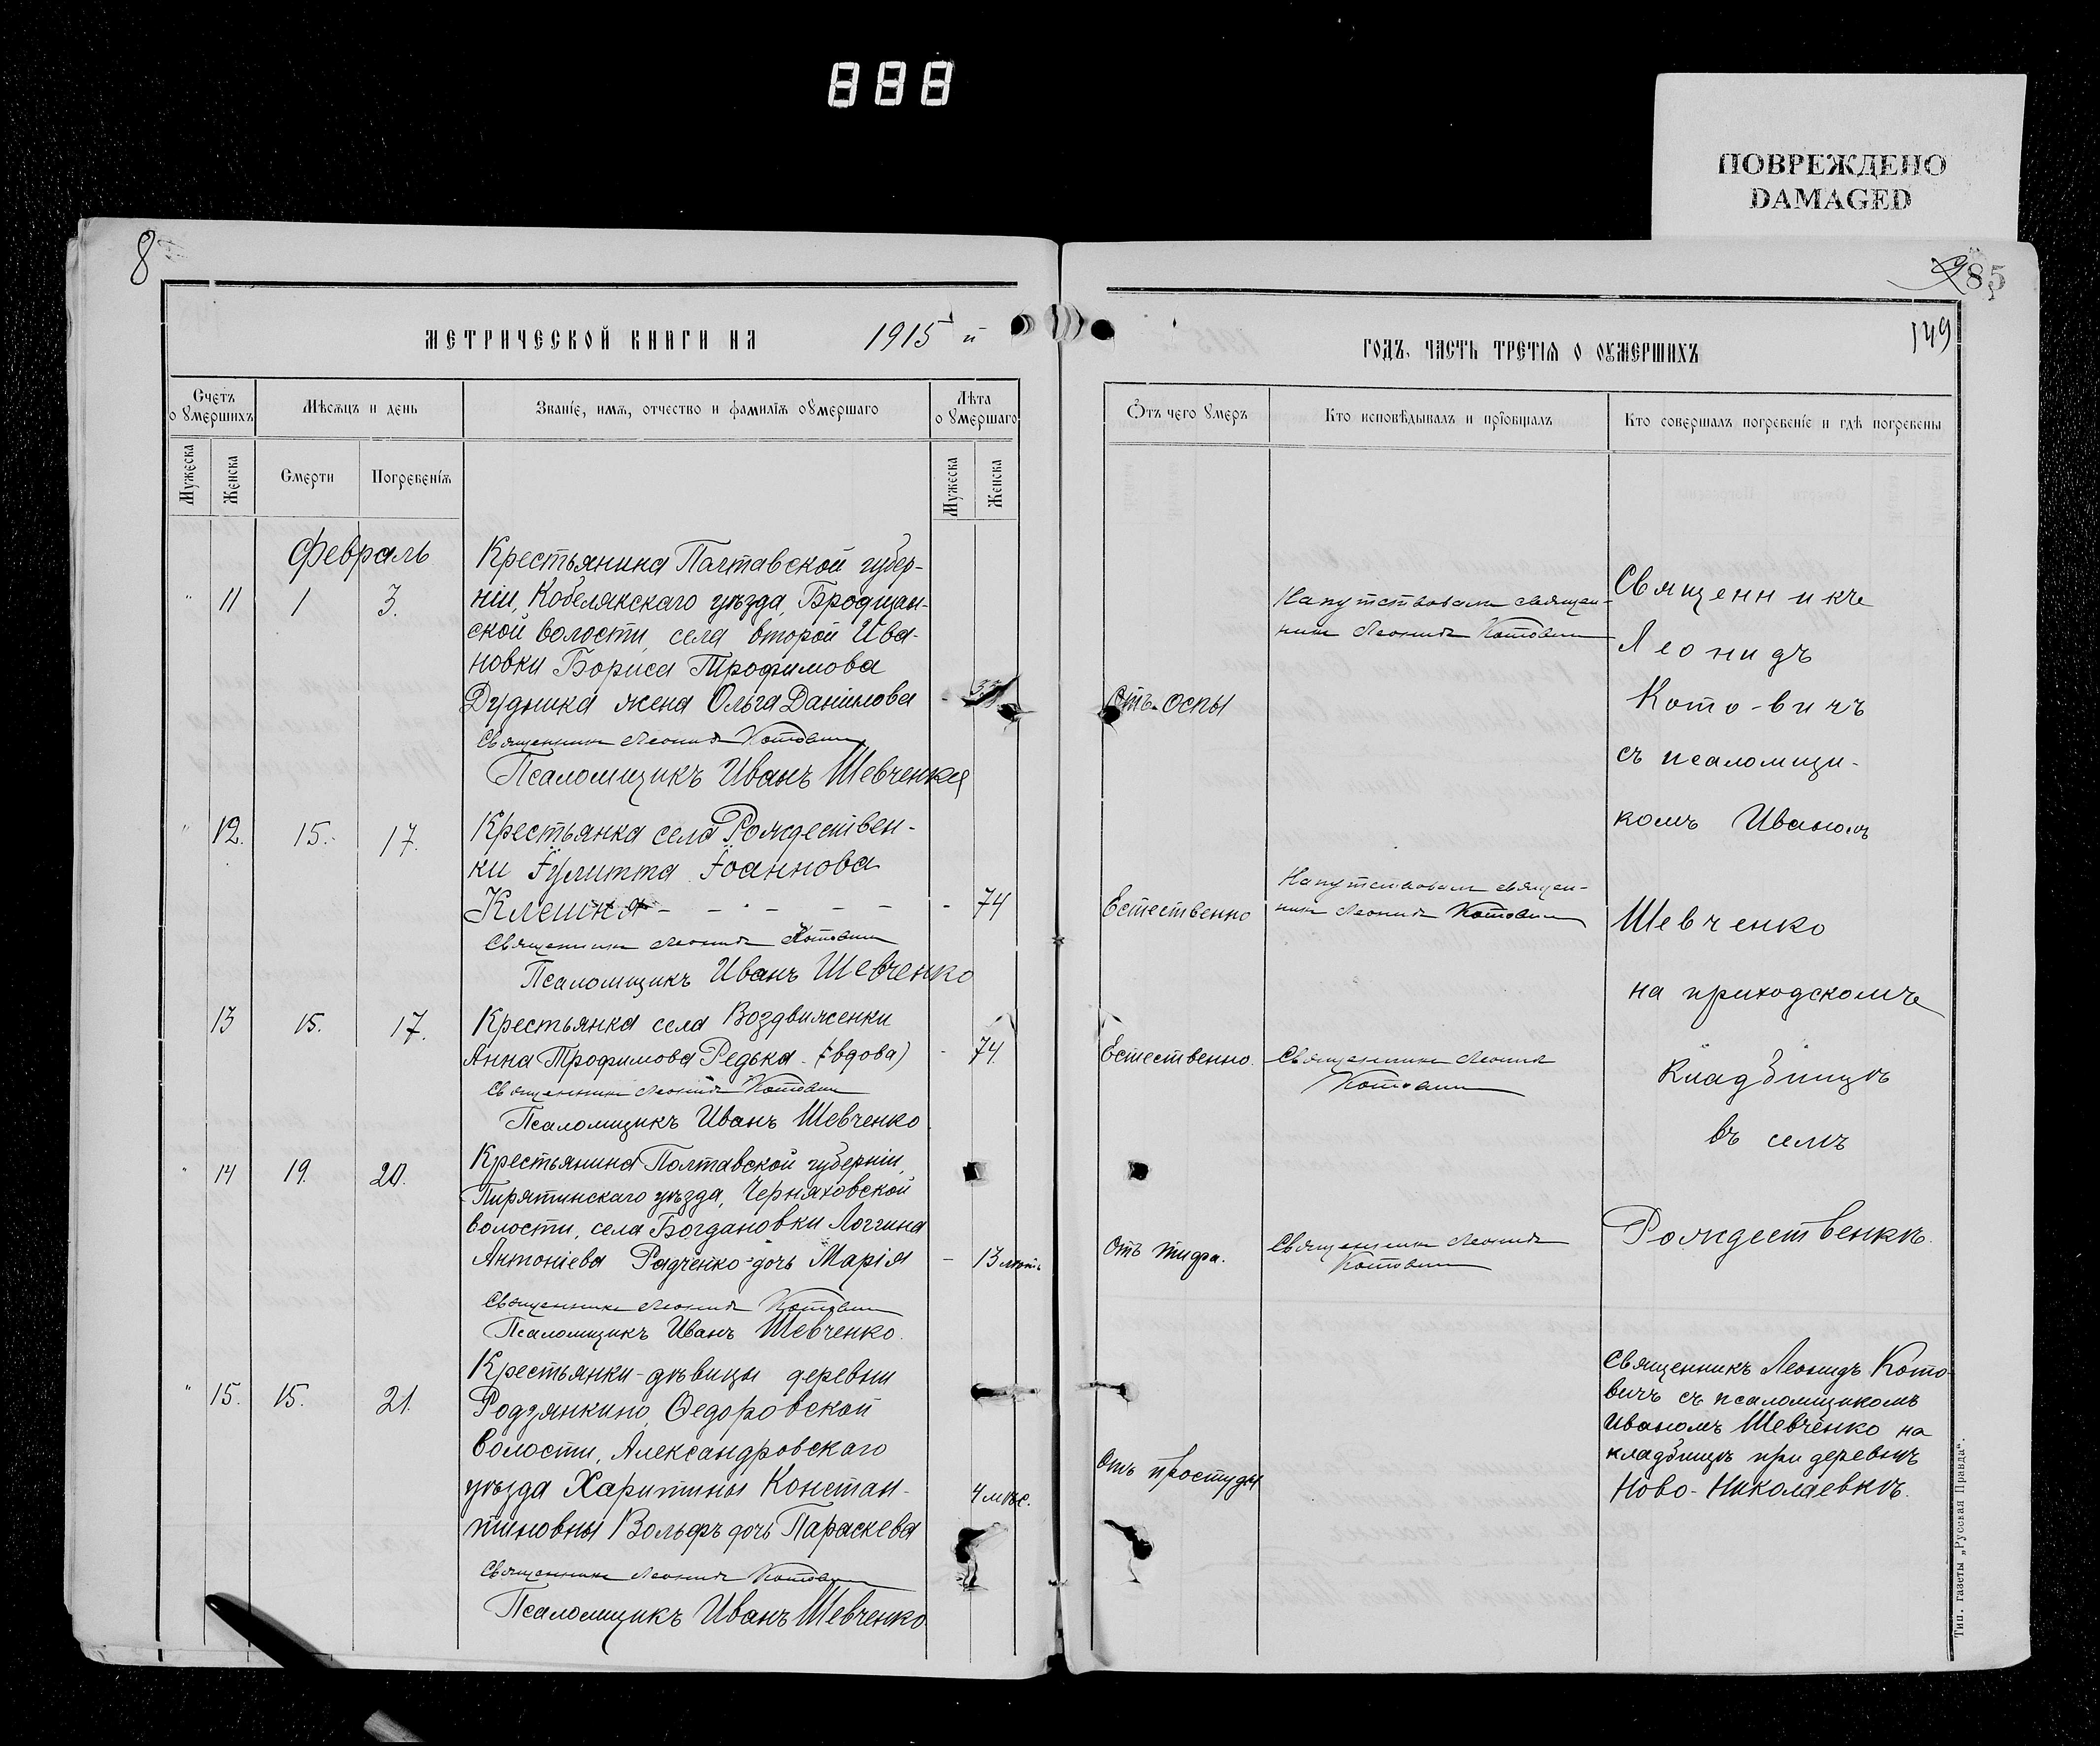 888
ПОВРЕЖДЕНО
DAMAGED
8
285
149
МЕТРИЧЕСКОЙ КНИГИ НА 1915 й
ГОДЪ, ЧАСТЬ ТРЕТІЯ О ОУМЕРШИХЪ
Счетъ оумершихъ
Мѣсяцъ и день
Званіе, имя, отчество и фамилія оумершаго
Лѣта оумершаго
Отъ чего умеръ
Кто исповѣдывалъ и пріобщалъ
Кто совершалъ погребеніе и гдѣ погребены
Мужеска
Женска
Смерти
Погребенія
Мужеска
Женска
Февраль
" 11 1 3.
Крестьянина Палтавской губер-
ніи, Кобелякскаго уѣзда, Бродщан-
ской волости, села второй Ива-
новки Бориса Трофимова
Дудника жена Ольга Данилова -
Отъ оспы
Напутствовалъ священ-
никъ Леонидъ Котовичъ
Священникъ Леонидъ Котовичъ
Псаломщикъ Иванъ Шевченко
" 12. 15. 17.
Крестьянка села Рождествен-
ки Іулитта Іоаннова
Клешня - - - - - - 74
Естественно
Напутствовалъ священ-
никъ Леонидъ Котовичъ
Священникъ Леонидъ Котовичъ
Псаломщикъ Иванъ Шевченко
13 15. 17.
Крестьянка села Воздвиженки
Анна Трофимова Редька - (вдова) - 74
Естественно.
Священникъ Леонидъ
Котовичъ
Священникъ Леонидъ Котовичъ
Псаломщикъ Иванъ Шевченко
" 14 19. 20.
Крестьянина Полтавской губерніи,
Пирятинскаго уѣзда, Черняховской
волости, села Богдановки Логгина
Антоніева Радченко - дочь Марія - 13 лѣтъ
Отъ тифа.
Священникъ Леонидъ
Котовичъ
Священникъ Леонидъ Котовичъ
Псаломщикъ Иванъ Шевченко.
Священникъ
Леонидъ
Кото-вичъ
съ псаломщи-
комъ Иваномъ
Шевченко
на приходскомъ
кладбищѣ
въ селѣ
Рождественкѣ.
" 15. 15. 21.
Крестьянки-дѣвицы деревни
Родзянкино, Ѳедоровской
волости, Александровскаго
уѣзда Харитины Констан-
тиновны Вольфъ дочь Параскева
4 мѣс.
Отъ простуды
Священникъ Леонидъ Котовичъ
Псаломщикъ Иванъ Шевченко.
Священникъ Леонидъ Кото-
вичъ съ псаломщикомъ
Иваномъ Шевченко на
кладбищѣ при деревнѣ
Ново-Николаевкѣ.
Тип. газеты „Русская Правда“.